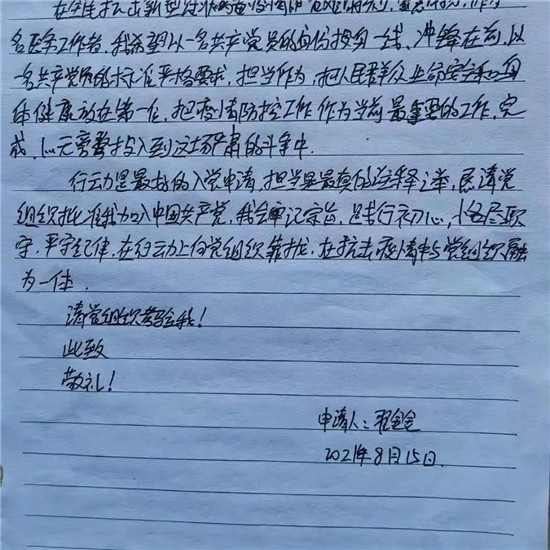 在阻击新型冠状病毒疫情的
名医务工作者,我希望以一名共产党员的身份投身一线,冲锋在前,以
一名共产党员的标准严格要求,担当作为,把人民群众生命安全和身
体健康放在第一位,把疫情防控工作作为当前最重要的工作,完
成,心无旁骛投入到这场严肃的斗争中.
行动是最好的入党申请,担当是最真的注释之举,恳请党
组织批准我加入中国共产党,我会牢记宗旨,践行初心,恪尽职
守,严守纪律,在行动上向党组织靠拢,在抗击疫情中与党组织融
为一体.
请党组织考验我!
此致
敬礼!
申请人:
2021年8月15日.